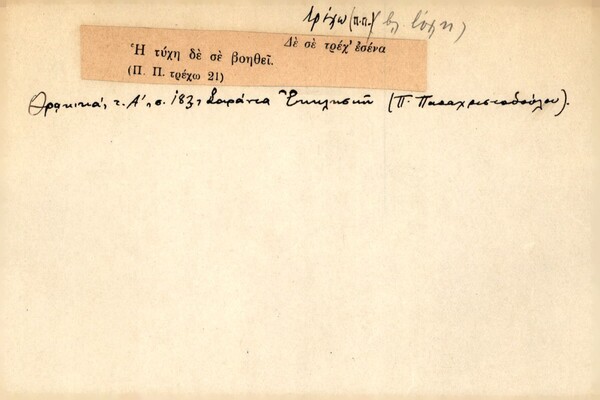 τρέχω (π.π.) (βλ. τύχη)
Δὲ σὲ τρέχ' ἐσένα
Ἡ τύχη δὲ σὲ βοηθεῖ.
(Π. Π. τρέχω 21)
Θρακικά, τ. Α', σ. 183, Σαράντα Ἐκκλησιῶν (Π. Παπαχριστοδούλου).